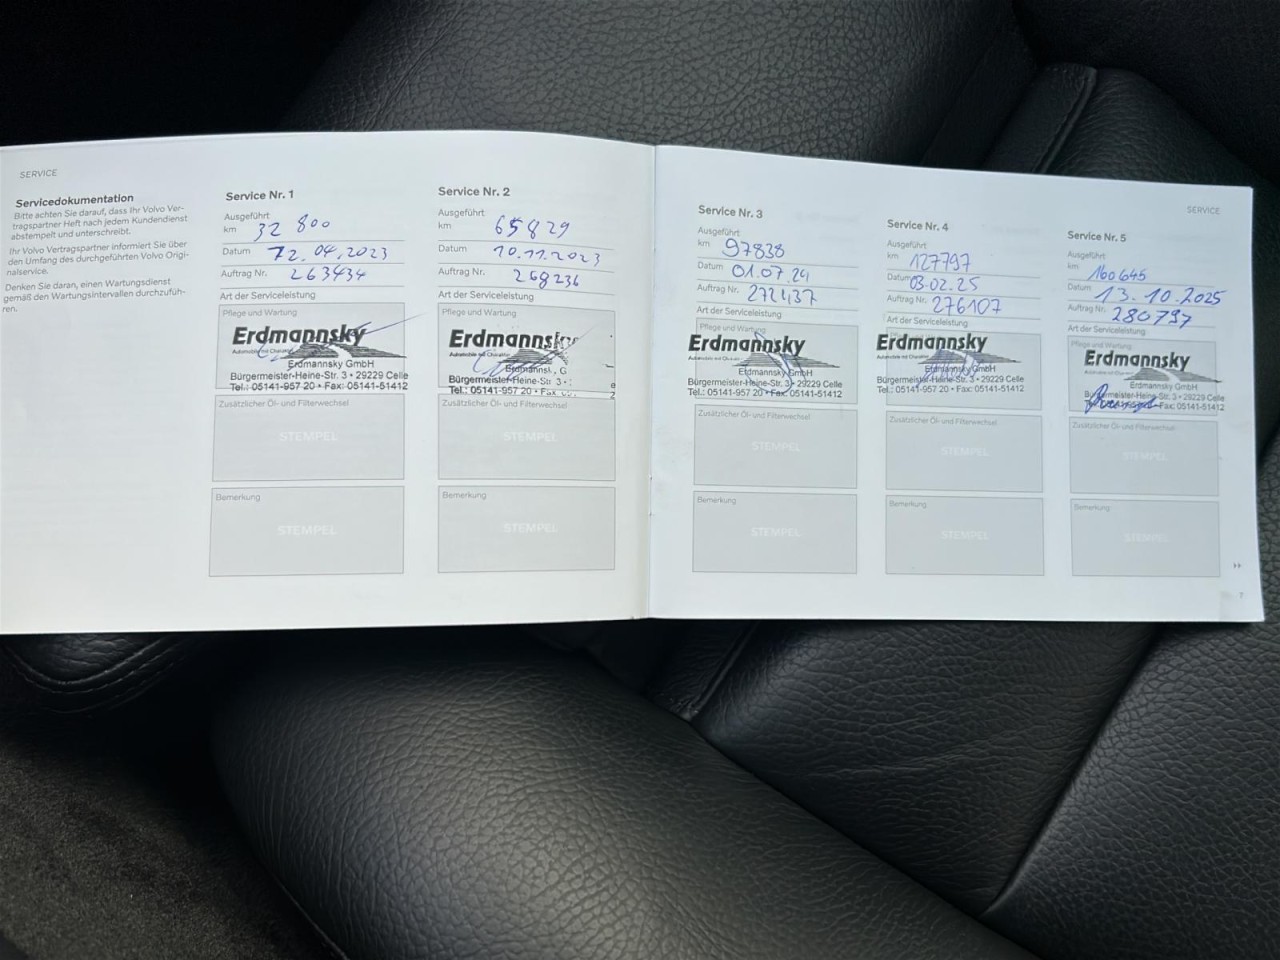 SERVICE
Servicedokumentation
Bitte achten Sie darauf, dass Ihr Volvo Ver-
tragspartner Heft nach jedem Kundendienst
abstempelt und unterschreibt.
Ihr Volvo Vertragspartner informiert Sie über
den Umfang des durchgeführten Volvo Origi-
nalservice.
Denken Sie daran, einen Wartungsdienst
gemäß den Wartungsintervallen durchzufüh-
ren.
Service Nr. 1
Ausgeführt
km 32 800
Datum 12.04.2023
Auftrag Nr. 263434
Art der Serviceleistung
Pflege und Wartung
Erdmannsky
Automobile mit Charakter
Erdmannsky GmbH
Bürgermeister-Heine-Str. 3 • 29229 Celle
Tel.: 05141-957 20 • Fax: 05141-51412
Zusätzlicher Öl- und Filterwechsel
STEMPEL
Bemerkung
STEMPEL
Service Nr. 2
Ausgeführt
km 65829
Datum 10.11.2023
Auftrag Nr. 268236
Art der Serviceleistung
Erdmannsky
Automobile mit Charakter
Erdmanns, G
Bürgermeister-Heine-Str. 3 •
Tel.: 05141-957 20 • Fax
Zusätzlicher Öl- und Filterwechsel
STEMPEL
Bemerkung
STEMPEL
SERVICE
Service Nr. 3
Ausgeführt
km 97838
Datum 01.07.24
Auftrag Nr. 272437
Art der Serviceleistung
Pflege und Wartung
Erdmannsky
Automobile mit Charakter
Erdmannsky GmbH
Bürgermeister-Heine-Str. 3 • 29229 Celle
Tel.: 05141-957 20 • Fax: 05141-51412
Zusätzlicher Öl- und Filterwechsel
STEMPEL
Bemerkung
STEMPEL
Service Nr. 4
Ausgeführt
km 127797
Datum 03.02.25
Auftrag Nr. 276107
Art der Serviceleistung
Pflege und Wartung
Erdmannsky
Automobile mit Charakter
Erdmannsky GmbH
Bürgermeister-Heine-Str. 3 • 29229 Celle
Tel.: 05141-957 20 • Fax: 05141-51412
Zusätzlicher Öl- und Filterwechsel
STEMPEL
Bemerkung
STEMPEL
Service Nr. 5
Ausgeführt
km 160645
Datum 13.10.2025
Auftrag Nr. 280797
Art der Serviceleistung
Pflege und Wartung
Erdmannsky
Automobile mit Charakter
Erdmannsky GmbH
Bürgermeister-Heine-Str. 3 • 29229 Celle
Fax: 05141-51412
Zusätzlicher Öl- und Filterwechsel
STEMPEL
Bemerkung
STEMPEL
7